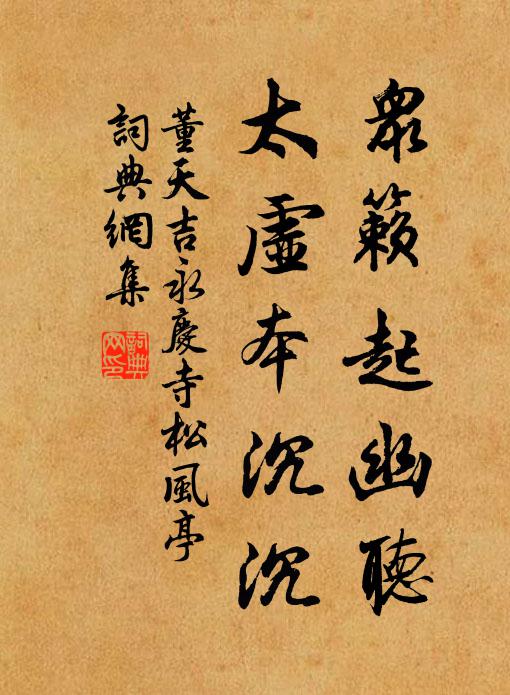 衆籟起幽聽
太虛本沉沉
董天吉永慶寺松風亭
詞典網集
詞典網印